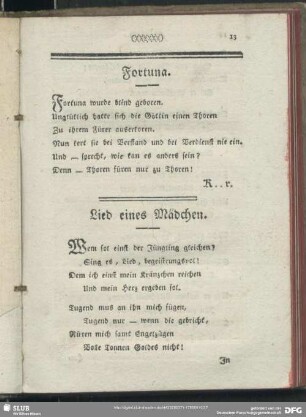 13
Fortuna.
Fortuna wurde blind geboren.
Unglüklich hatte sich die Göttin einen Thoren
Zu ihrem Fürer auserkoren.
Nun kert sie bei Verstand und bei Verdienst nie ein.
Und — sprecht, wie kan es anders sein?
Denn — Thoren füren nur zu Thoren!
R . . r.
Lied eines Mädchen.
Wem sol einst der Jüngling gleichen?
Sing es, Lied, begeistrungsvol!
Dem ich einst mein Kränzchen reichen
Und mein Herz ergeben sol.
Tugend mus an ihn mich fügen,
Tugend nur — wenn die gebricht,
Rüren mich samt Engelzügen
Volle Tonnen Goldes nicht!
In
SLUB